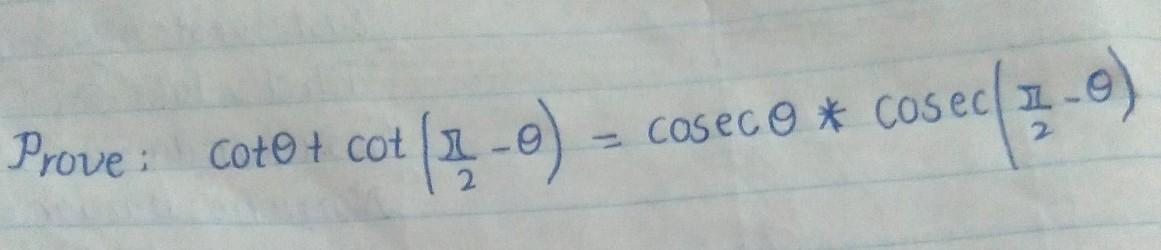 Prove: cotθ + cot(π/2 - θ) = cosec θ * cosec(π/2 - θ)